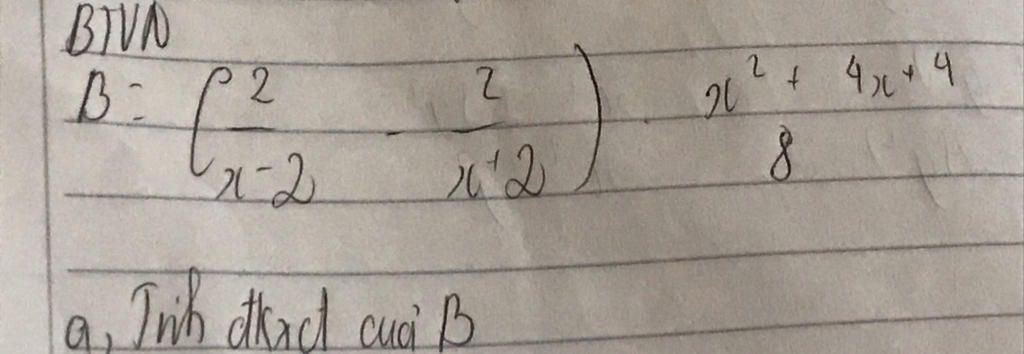 BTVN
B = (2/(x-2) - 2/(x+2)) . (x² + 4x + 4)/8
a, Tính đkxđ của B